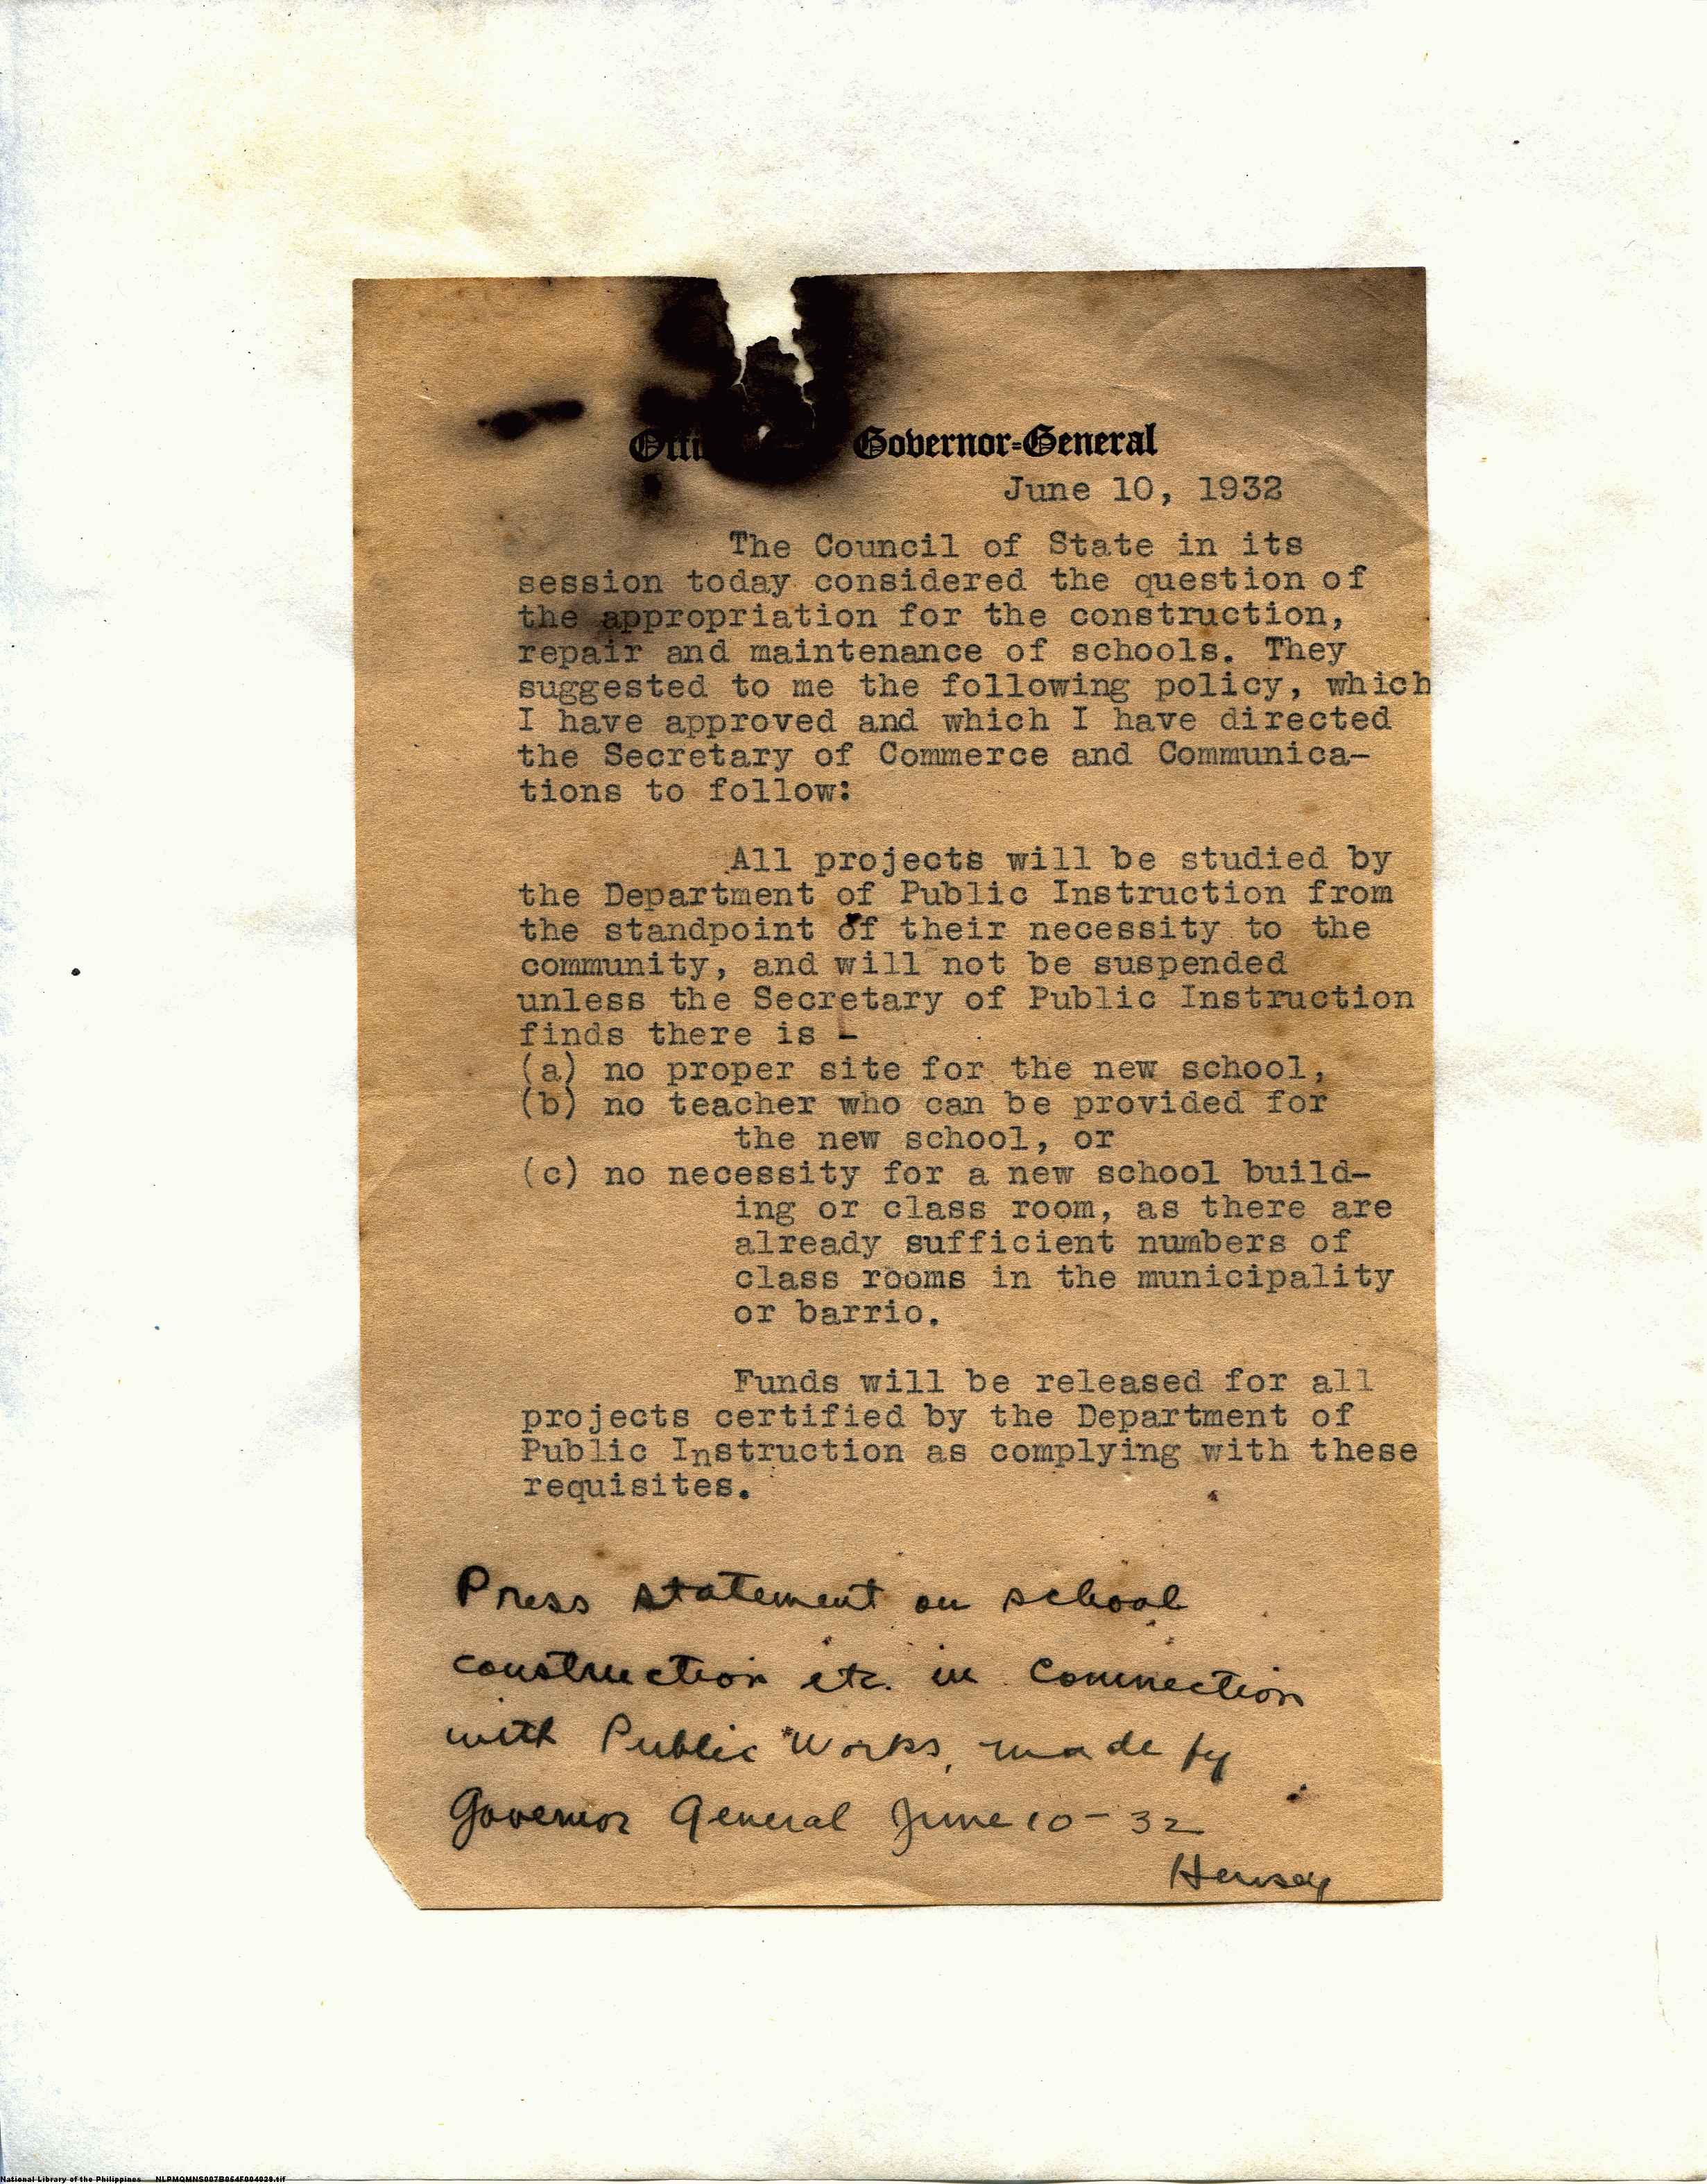 Governor-General
June 10, 1932
The Council of State in its
session today considered the question of
the appropriation for the construction,
repair and maintenance of schools. They
suggested to me the following policy, which
I have approved and which I have directed
the Secretary of Commerce and Communica-
tions to follow:
All projects will be studied by
the Department of Public Instruction from
the standpoint of their necessity to the
community, and will not be suspended
unless the Secretary of Public Instruction
finds there is -
(a) no proper site for the new school,
(b) no teacher who can be provided for
the new school, or
(c) no necessity for a new school build-
ing or class room, as there are
already sufficient numbers of
class rooms in the municipality
or barrio.
Funds will be released for all
projects certified by the Department of
Public Instruction as complying with these
requisites.
Press statement on school
construction etc. in connection
with Public Works, made by
Governor General June 10-32
National Library of the Philippines